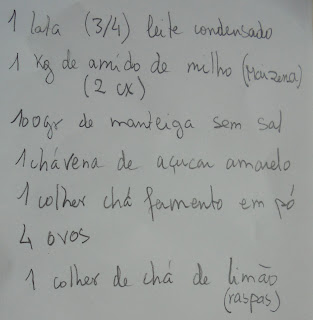 1 lata (3/4) leite condensado
1 Kg de amido de milho (Maizena)
(2 cx)
100gr de manteiga sem sal
1 chávena de açucar amarelo
1 colher chá fermento em pó
4 ovos
1 colher de chá de limão
(raspas)